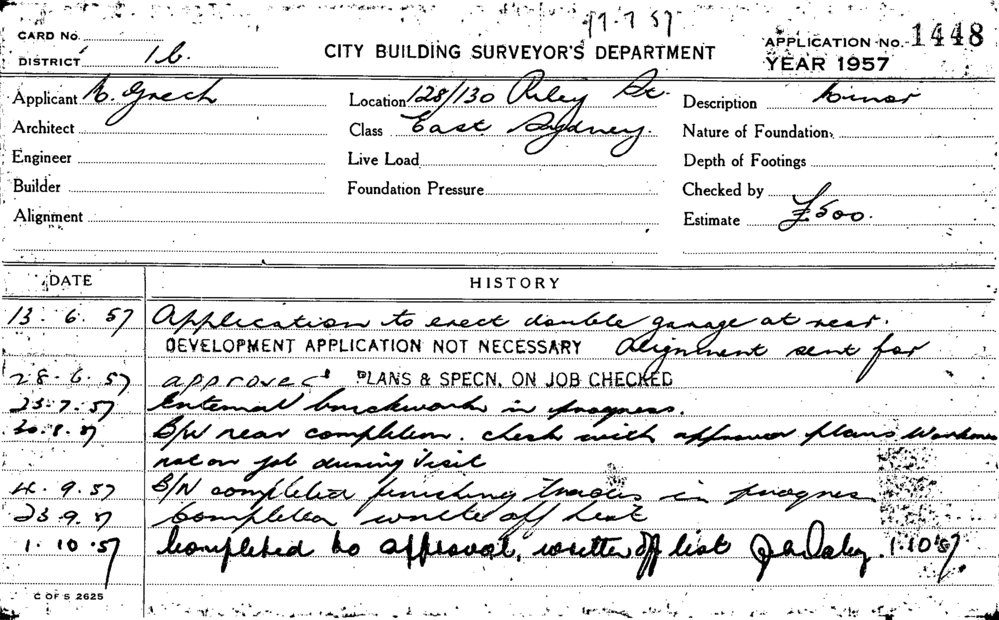 17.7.57
CARD No.
CITY BUILDING SURVEYOR'S DEPARTMENT
APPLICATION No. 1448
DISTRICT 1b.
YEAR 1957
Applicant Grech Location 128/130 Riley St. Description Minor
Architect Class East Sydney. Nature of Foundation
Engineer Live Load Depth of Footings
Builder Foundation Pressure Checked by
Alignment Estimate £500.
DATE HISTORY
13.6.57 Application to erect double garage at rear.
DEVELOPMENT APPLICATION NOT NECESSARY Alignment sent for
28.6.57 approved PLANS & SPECN. ON JOB CHECKED
23.7.57 External brickwork in progress.
30.8.57 B/W near completion. check with approved plans Workmen
not on job during visit
4.9.57 B/W completed finishing trades in progress
23.9.57 Completed write off list
1.10.57 Completed to approval, written off list 1.10.57
C OF S 2625